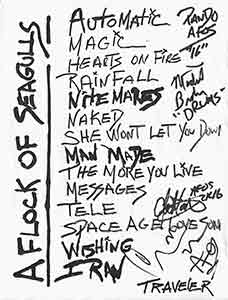 A FLOCK OF SEAGULLS
AUTOMATIC
MAGIC
HEARTS ON FIRE
RAINFALL
NITE MARES
NAKED
SHE WON'T LET YOU DOWN
MAN MADE
THE MORE YOU LIVE
MESSAGES
TELE
SPACE AGE LOVE SONG
WISHING
I RAN
TRAVELER
PANDO
AFOS
"16"
"DRUMS"
AFOS
2K16